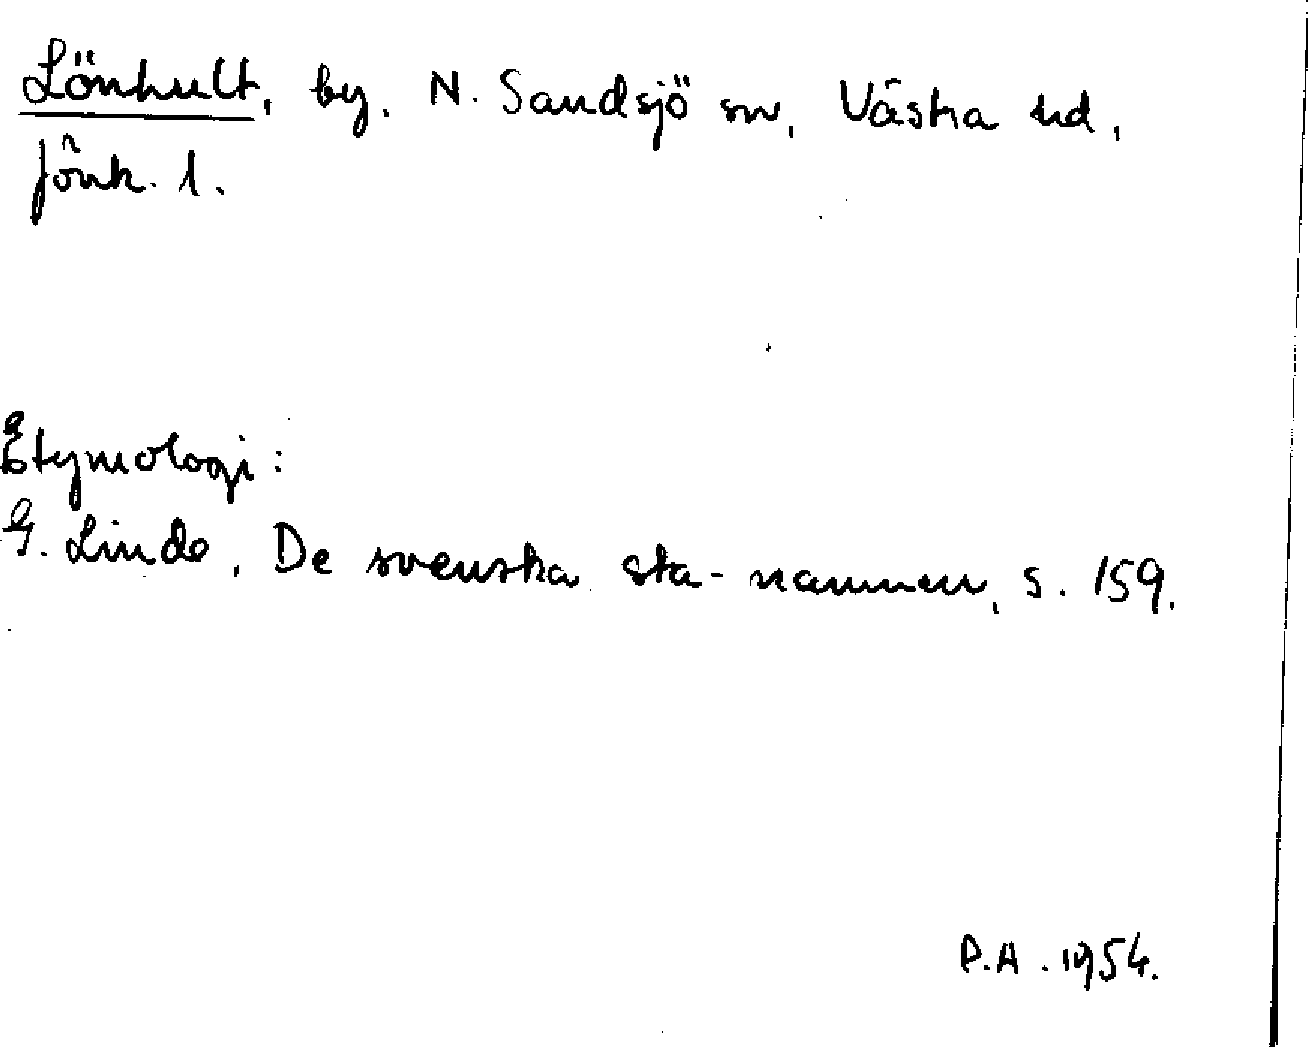 Lönhult, by. N. Sandsjö sn, Västra hd,
Jönk. l.
Etymologi:
G. Linde, De svenska sta-namnen, s. 159.
P.A. 1954.